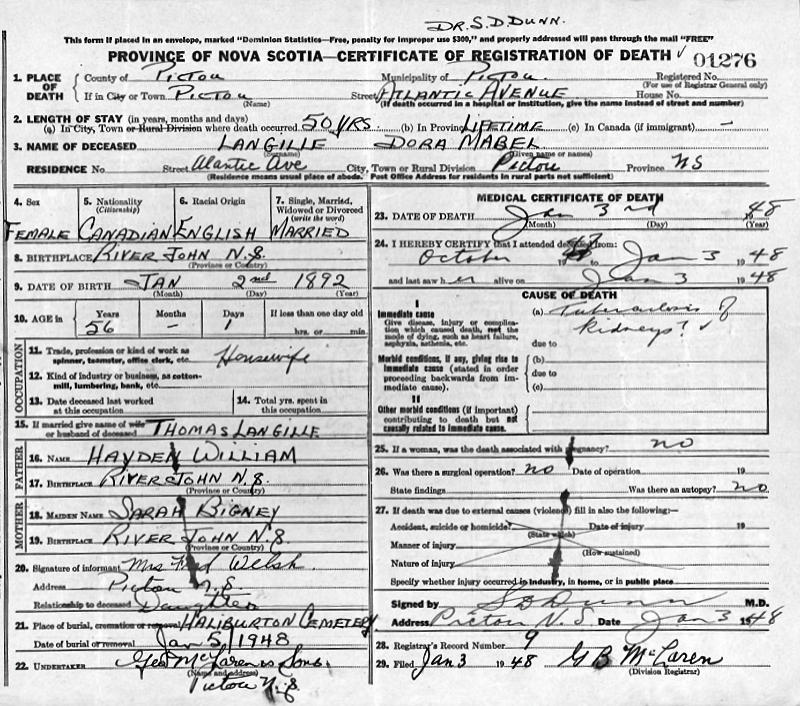 DR. S. D. DUNN.
This form if placed in an envelope, marked "Dominion Statistics—Free, penalty for improper use $300," and properly addressed will pass through the mail "FREE"
PROVINCE OF NOVA SCOTIA—CERTIFICATE OF REGISTRATION OF DEATH ✓ 01276
1. PLACE OF DEATH County of PICTOU Municipality of PICTOU. Registered No.
(For use of Registrar General only)
If in City or Town PICTOU Street ATLANTIC AVENUE House No.
(Name) (If death occurred in a hospital or institution, give the name instead of street and number)
2. LENGTH OF STAY (in years, months and days)
(a) In City, Town or Rural Division where death occurred 50 YRS (b) In Province LIFETIME (c) In Canada (if immigrant) —
3. NAME OF DECEASED LANGILLE DORA MABEL
(Surname) (Given name or names)
RESIDENCE No. Street Alantic Ave City, Town or Rural Division Pictou Province NS
(Residence means usual place of abode. Post Office Address for residents in rural parts not sufficient)
4. Sex 5. Nationality (Citizenship) 6. Racial Origin 7. Single, Married, Widowed or Divorced (write the word)
FEMALE CANADIAN ENGLISH MARRIED
8. BIRTHPLACE RIVER JOHN N.S.
(Province or Country)
9. DATE OF BIRTH JAN 2nd 1892
(Month) (Day) (Year)
10. AGE in Years Months Days If less than one day old
56 — 1 hrs. or min.
OCCUPATION
11. Trade, profession or kind of work as spinner, teamster, office clerk, etc. Housewife
12. Kind of industry or business, as cotton-mill, lumbering, bank, etc.
13. Date deceased last worked at this occupation 14. Total yrs. spent in this occupation
15. If married give name of wife or husband of deceased THOMAS LANGILLE
FATHER
16. NAME HAYDEN WILLIAM
17. BIRTHPLACE RIVER JOHN N.S.
(Province or Country)
MOTHER
18. MAIDEN NAME SARAH RIGNEY
19. BIRTHPLACE RIVER JOHN N.S.
(Province or Country)
20. Signature of informant Mrs Fred Welsh.
Address Pictou N.S.
Relationship to deceased Daughter
21. Place of burial, cremation or removal HALIBURTON CEMETERY
Date of burial or removal Jan 5/1948
22. UNDERTAKER Geo McLaren & Sons.
(Name and address)
Pictou N.S.
MEDICAL CERTIFICATE OF DEATH
23. DATE OF DEATH Jan 3rd 1948
(Month) (Day) (Year)
24. I HEREBY CERTIFY that I attended deceased from:
October 1947 to Jan 3 1948
and last saw her alive on Jan 3 1948
CAUSE OF DEATH
I
Immediate cause (a) Tuberculosis of
Give disease, injury or complication which caused death, not the mode of dying, such as heart failure, asphyxia, asthenia, etc. kidneys? ✓
due to
Morbid conditions, if any, giving rise to immediate cause (stated in order proceeding backwards from immediate cause). (b)
due to
(c)
II
Other morbid conditions (if important) contributing to death but not causally related to immediate cause.
25. If a woman, was the death associated with pregnancy? no
26. Was there a surgical operation? no Date of operation 19
State findings Was there an autopsy? no.
27. If death was due to external causes (violence) fill in also the following:—
Accident, suicide or homicide? Date of injury 19
(State which)
Manner of injury
(How sustained)
Nature of injury
Specify whether injury occurred in industry, in home, or in public place
Signed by S D Dunn M.D.
Address Pictou N.S. Date Jan 3 1948
28. Registrar's Record Number 9
29. Filed Jan 3 1948 G B McLaren
(Division Registrar)